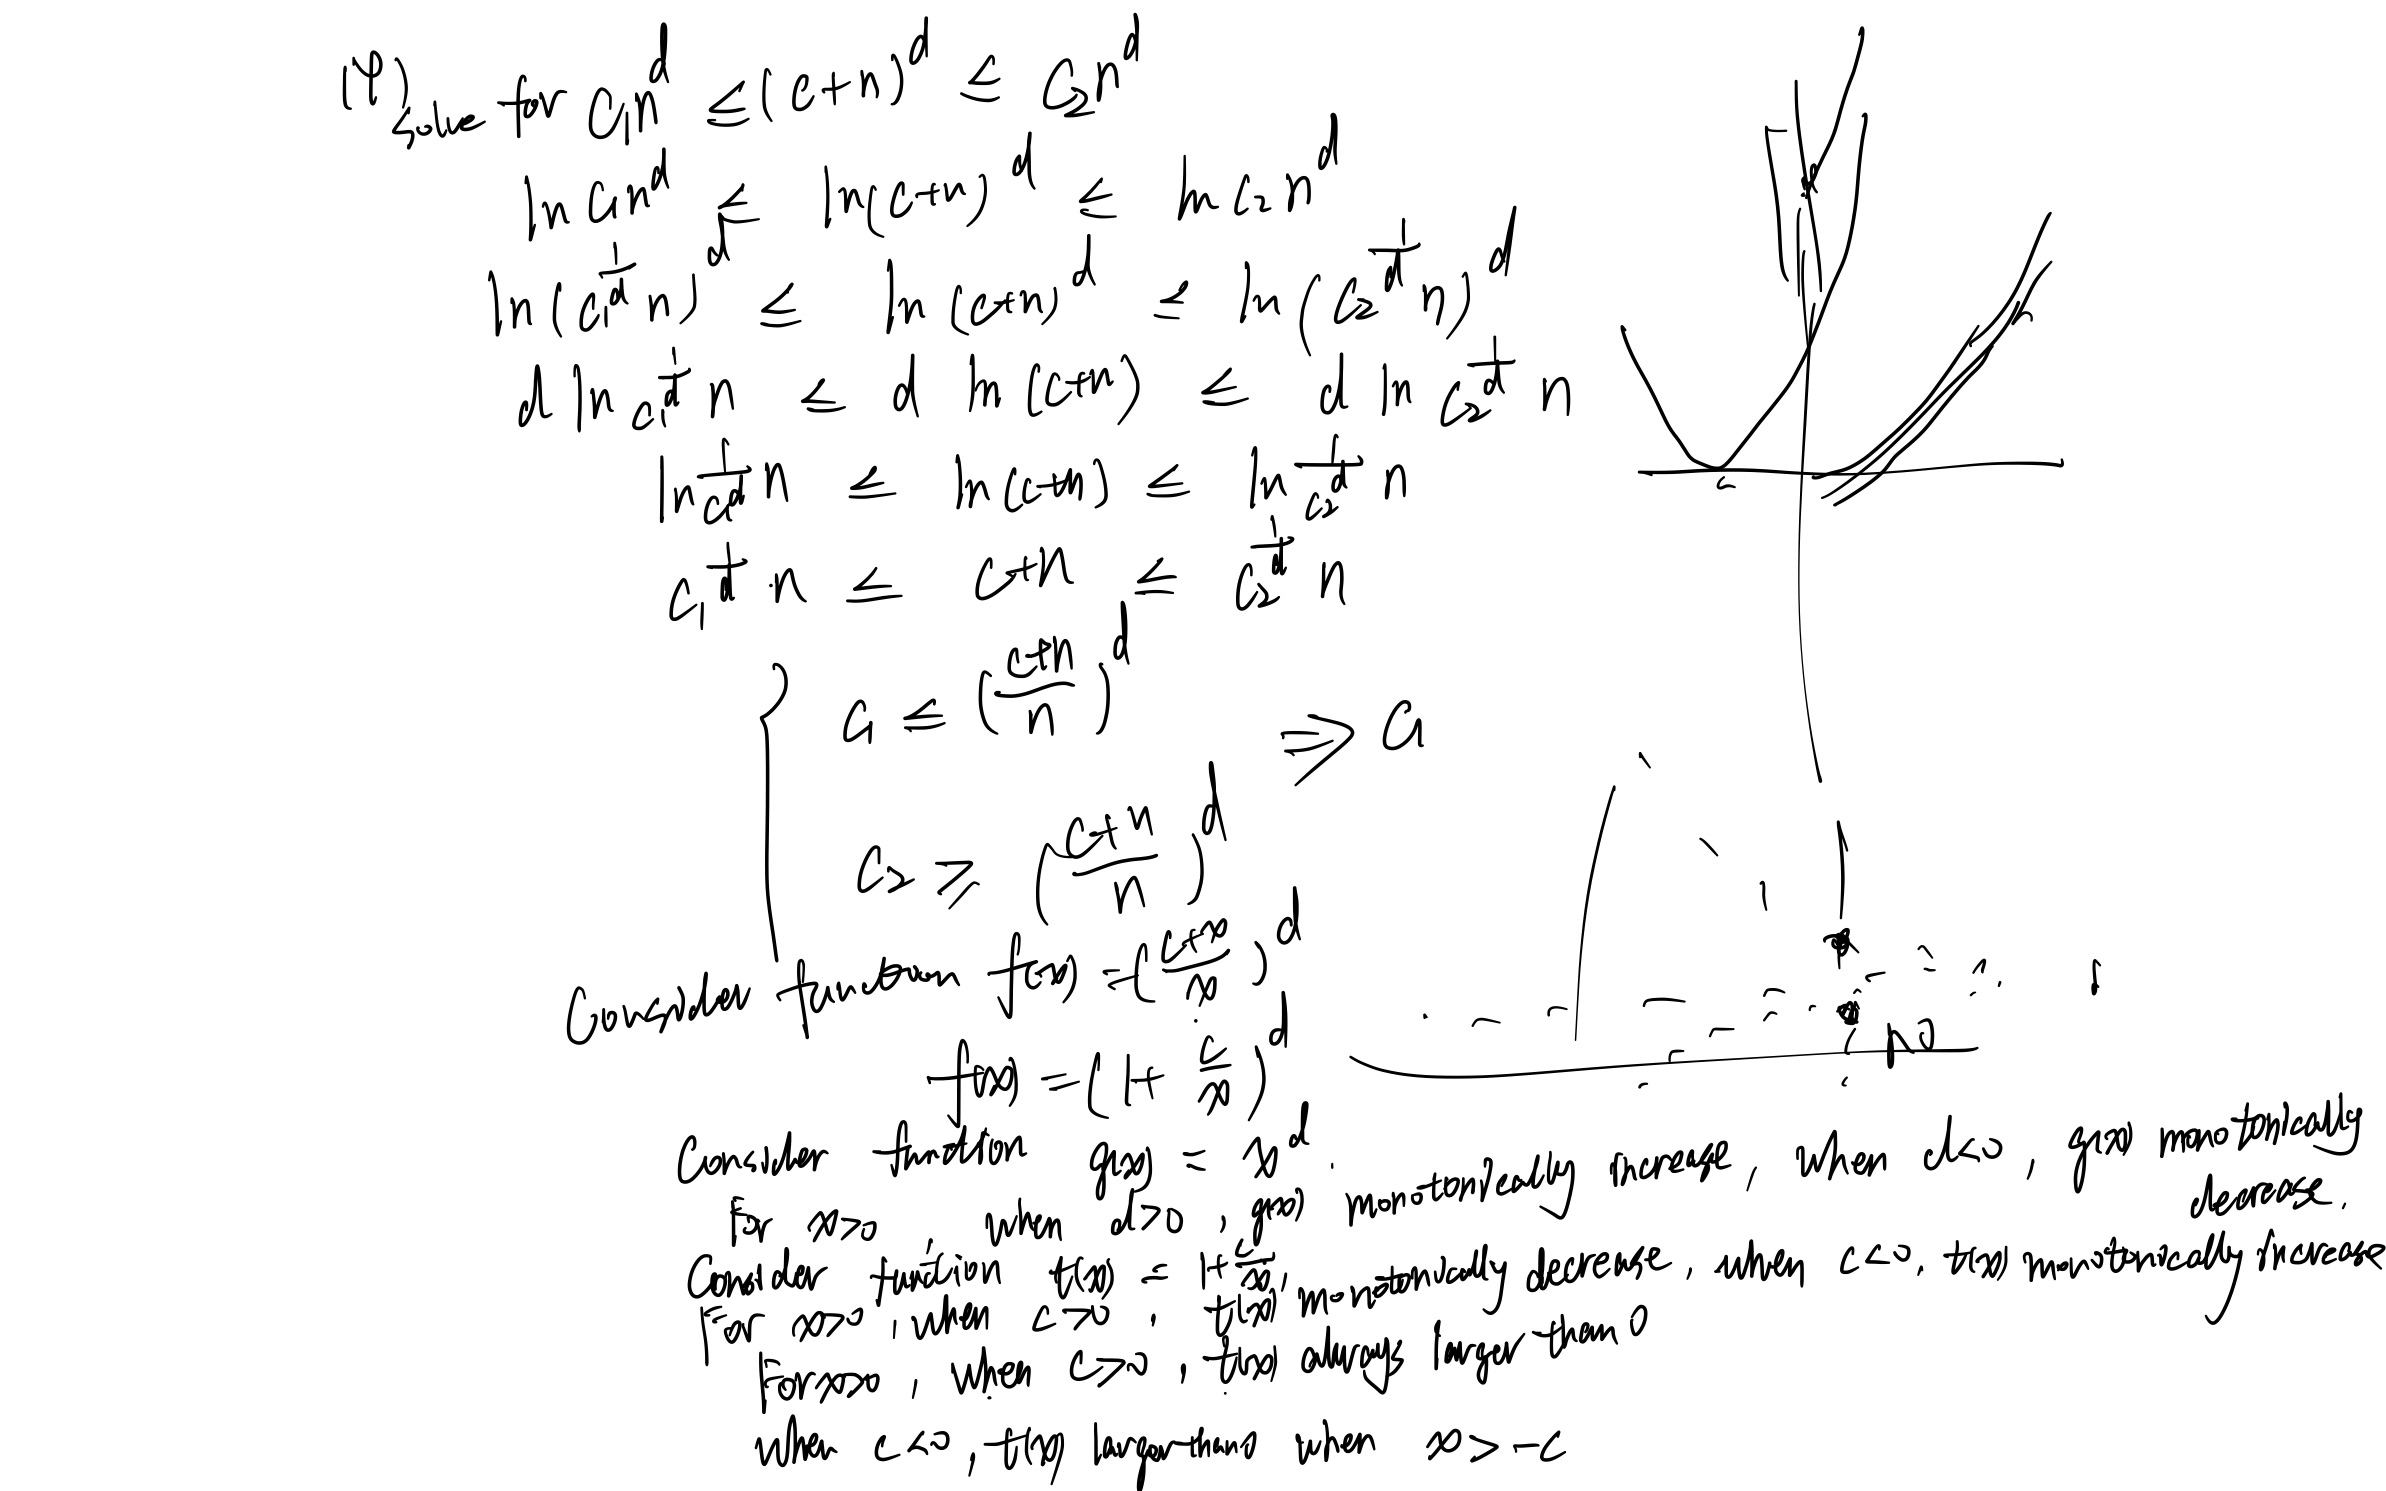 (φ) solve for C₁n^d ≤ (c+n)^d ≤ C₂n^d
ln C₁n^d ≤ ln(c+n)^d ≤ ln C₂n^d
ln(C₁^(1/d) n)^d ≤ ln(c+n)^d ≤ ln(C₂^(1/d) n)^d
d ln C₁^(1/d) n ≤ d ln(c+n) ≤ d ln C₂^(1/d) n
ln C₁^(1/d) n ≤ ln(c+n) ≤ ln C₂^(1/d) n
C₁^(1/d) · n ≤ c+n ≤ C₂^(1/d) n
{ C₁ ≤ ((c+n)/n)^d ⇒ C₁
C₂ ≥ ((c+n)/n)^d
Consider function f(x) = ((c+x)/x)^d
f(x) = (1 + c/x)^d
n0
Consider function g(x) = x^d.
For x>0, when d>0, g(x) monotonically increase, when d<0, g(x) monotonically decrease.
Consider function t(x) = 1+c/x,
For x>0, when c>0, t(x) monotonically decrease, when c<0, t(x) monotonically increase
For x>0, when c>0, t(x) always larger than 0
when c<0, t(x) larger than 0 when x > -c